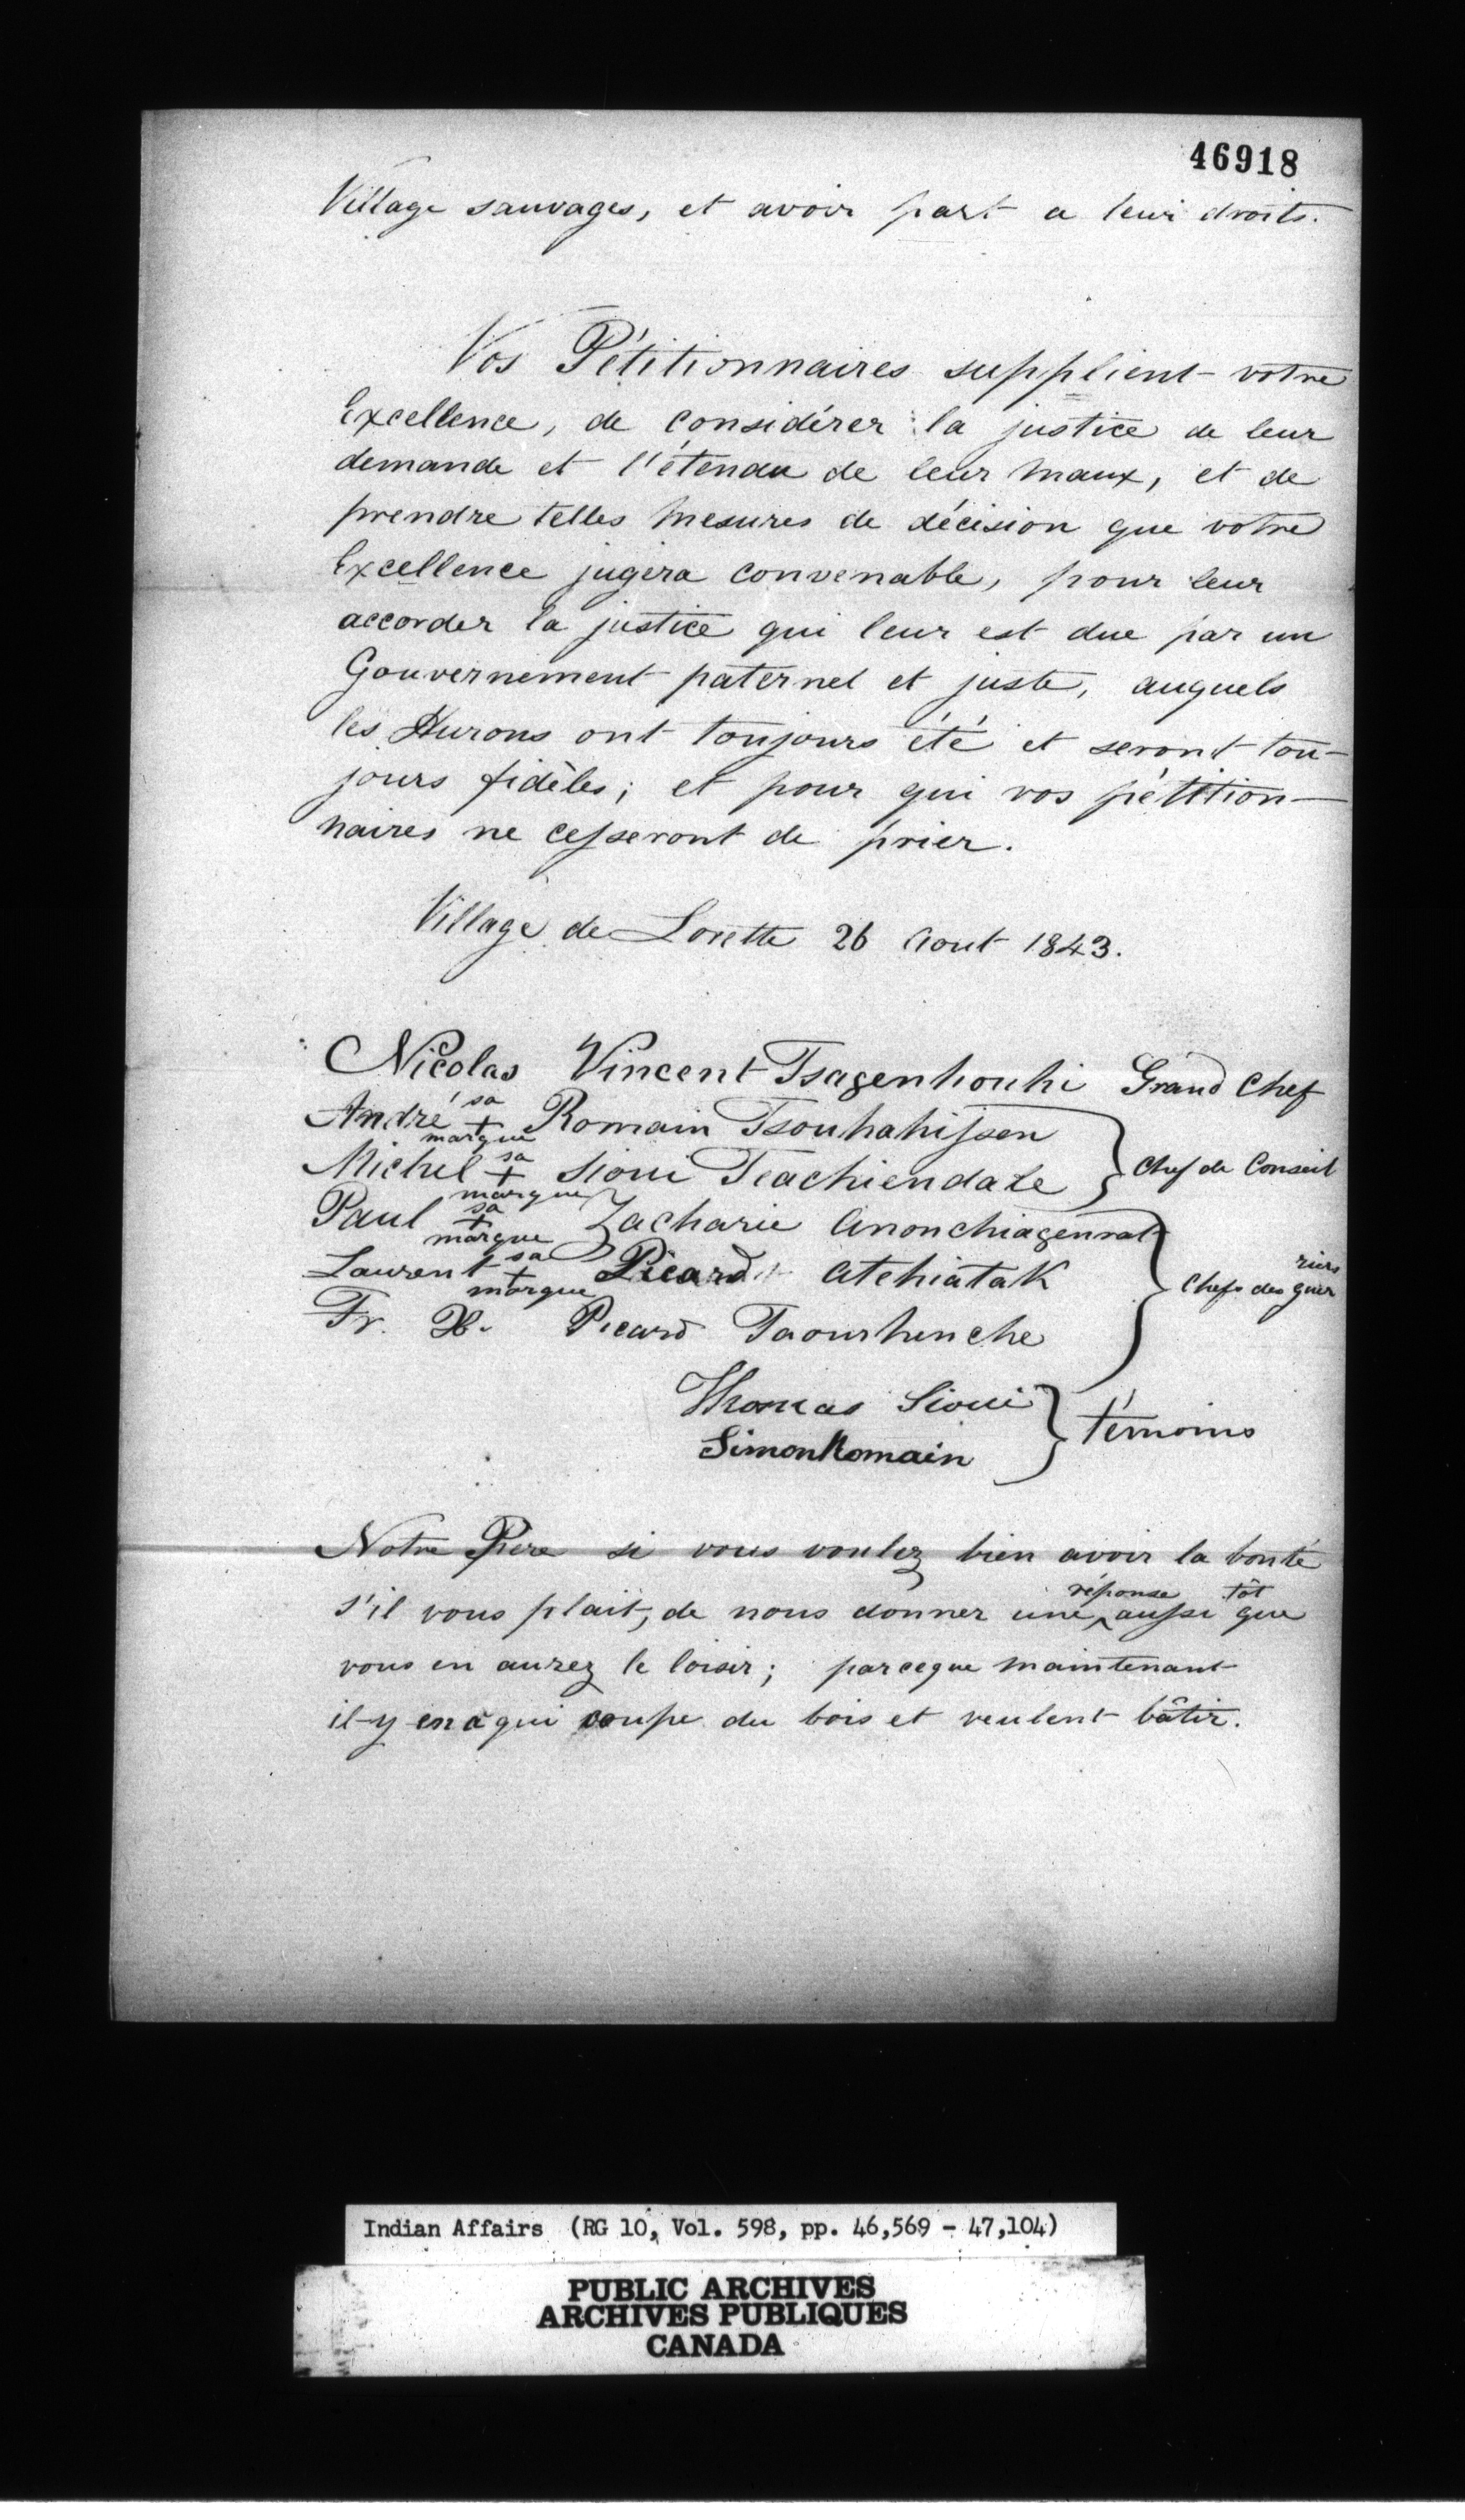 46918
Village sauvages, et avoir part a leur droits.
Vos Pétitionnaires supplient votre
Excellence, de considérer la justice de leur
demande et l'étendu de leur maux, et de
prendre telles mesures de décision que votre
Excellence jugera convenable, pour leur
accorder la justice qui leur est due par un
Gouvernement paternel et juste, auquels
les Hurons ont toujours été et seront tou-
jours fidèles; et pour qui vos pétition-
naires ne cesseront de prier.
Village de Lorette 26 Aout 1843.
Nicolas Vincent Tsagenhouhi Grand Chef
André sa + marque Romain Tsouhahissen
Michel sa + marque Sioui Teachiendate } Chef de Conseil
Paul sa + marque Zacharie Anonchiagenrat
Laurent sa + marque Picard Atehiatak } Chefs des guerriers
Fr. X. Picard Taourhenche
Thomas Sioui
Simon Romain } témoins
Notre Père si vous voulez bien avoir la bonté
s'il vous plait, de nous donner une réponse aussi tôt que
vous en aurez le loisir; parceque maintenant
il-y en à qui coupe du bois et veulent bâtir.
Indian Affairs (RG 10, Vol. 598, pp. 46,569 - 47,104)
PUBLIC ARCHIVES
ARCHIVES PUBLIQUES
CANADA